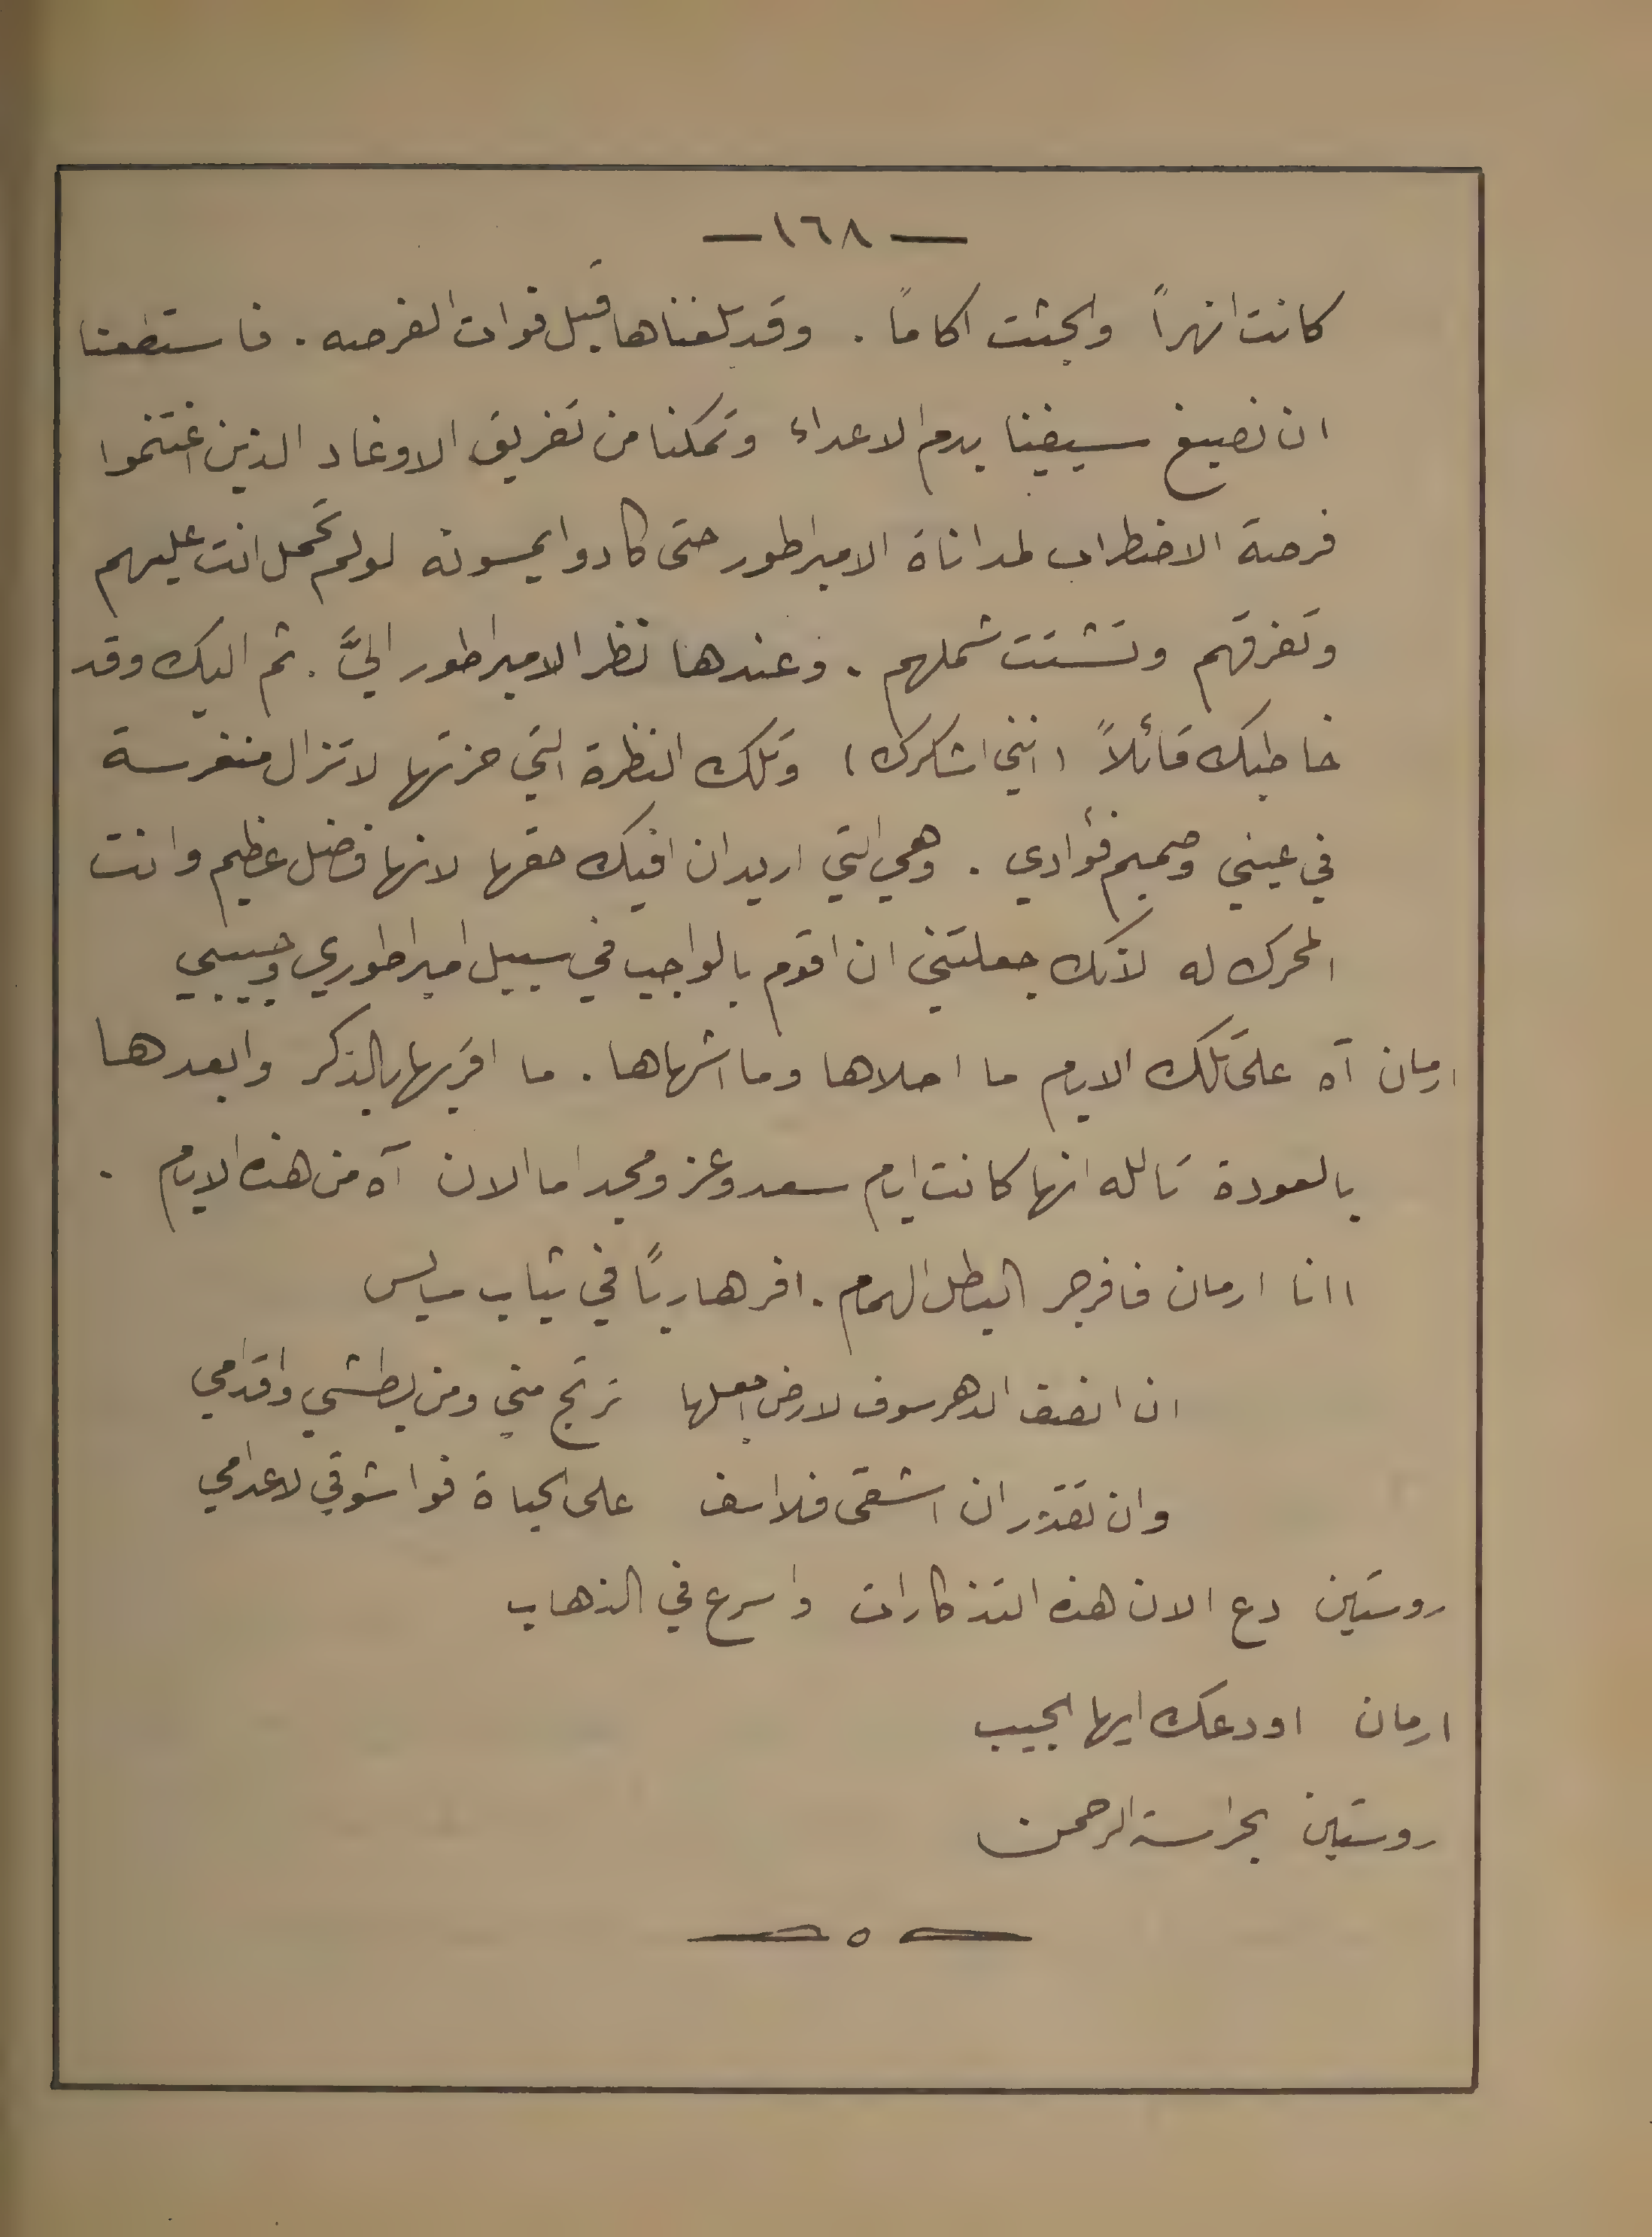 — ١٦٨ —
كانت انهراً والجثث اكاماً . وقد بلغناها قبل فوات الفرصه . فاستطعنا
ان نصبغ سيفينا بدم الاعداء وتمكنا من تفريق الاوغاد الذين اغتنموا
فرصة الاضطراب لمداناة الامبراطور حتى كادوا يمسونه لولم تحمل انت عليهم
وتفرقهم وتشتت شملهم . وعندها نظر الامبراطور اليَّ . ثم اليك وقد
خاطبك قائلاً (انني اشكرك) وتلك النظرة التي حزتها لا تزال منغرسة
في عيني وصميم فؤادي . وهي التي اريد ان افيك حقها لانها فضل عظيم وانت
المحرك له لأنك جعلتني ان اقوم بالواجب في سبيل امبراطوري وحبيبي
ارمان آه على تلك الايام ما احلاها وما اشهاها . ما اقربها بالذكر وابعدها
بالعودة تالله انها كانت ايام سعد وعز ومجد اما الان آه من هذه الايام .
اانا ارمان فافرجر البطل الهمام . افر هارباً في ثياب سايس
ان انصف الدهر سوف لارض اجعلها ترتج مني ومن بطشي واقدامي
وان تقدر ان اشقى فلا اسف على الحياة فوا شوقي لاعدامي
روستين دع الان هذه التذكارات واسرع في الذهاب
ارمان اودعك ايها الحبيب
روستين بحراسة الرحمن